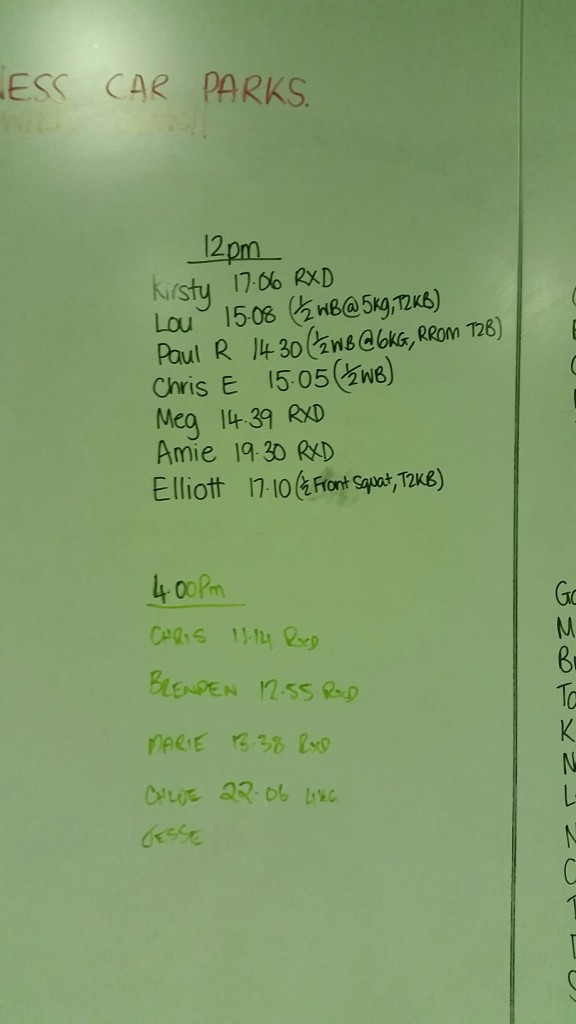 CAR PARKS.
12pm
Kirsty 17.06 RXD
Lou 15.08 (1/2 WB@5kg, T2KB)
Paul R 14.30 (1/2 WB@6KG, RROM T2B)
Chris E 15.05 (1/2 WB)
Meg 14.39 RXD
Amie 19.30 RXD
Elliott 17.10 (1/2 Front Squat, T2KB)
4.00Pm
CHRIS 11.14 RXD
BRENDEN 12.55 RXD
MARIE 13.38 RXD
CHLOE 22.06
JESSE